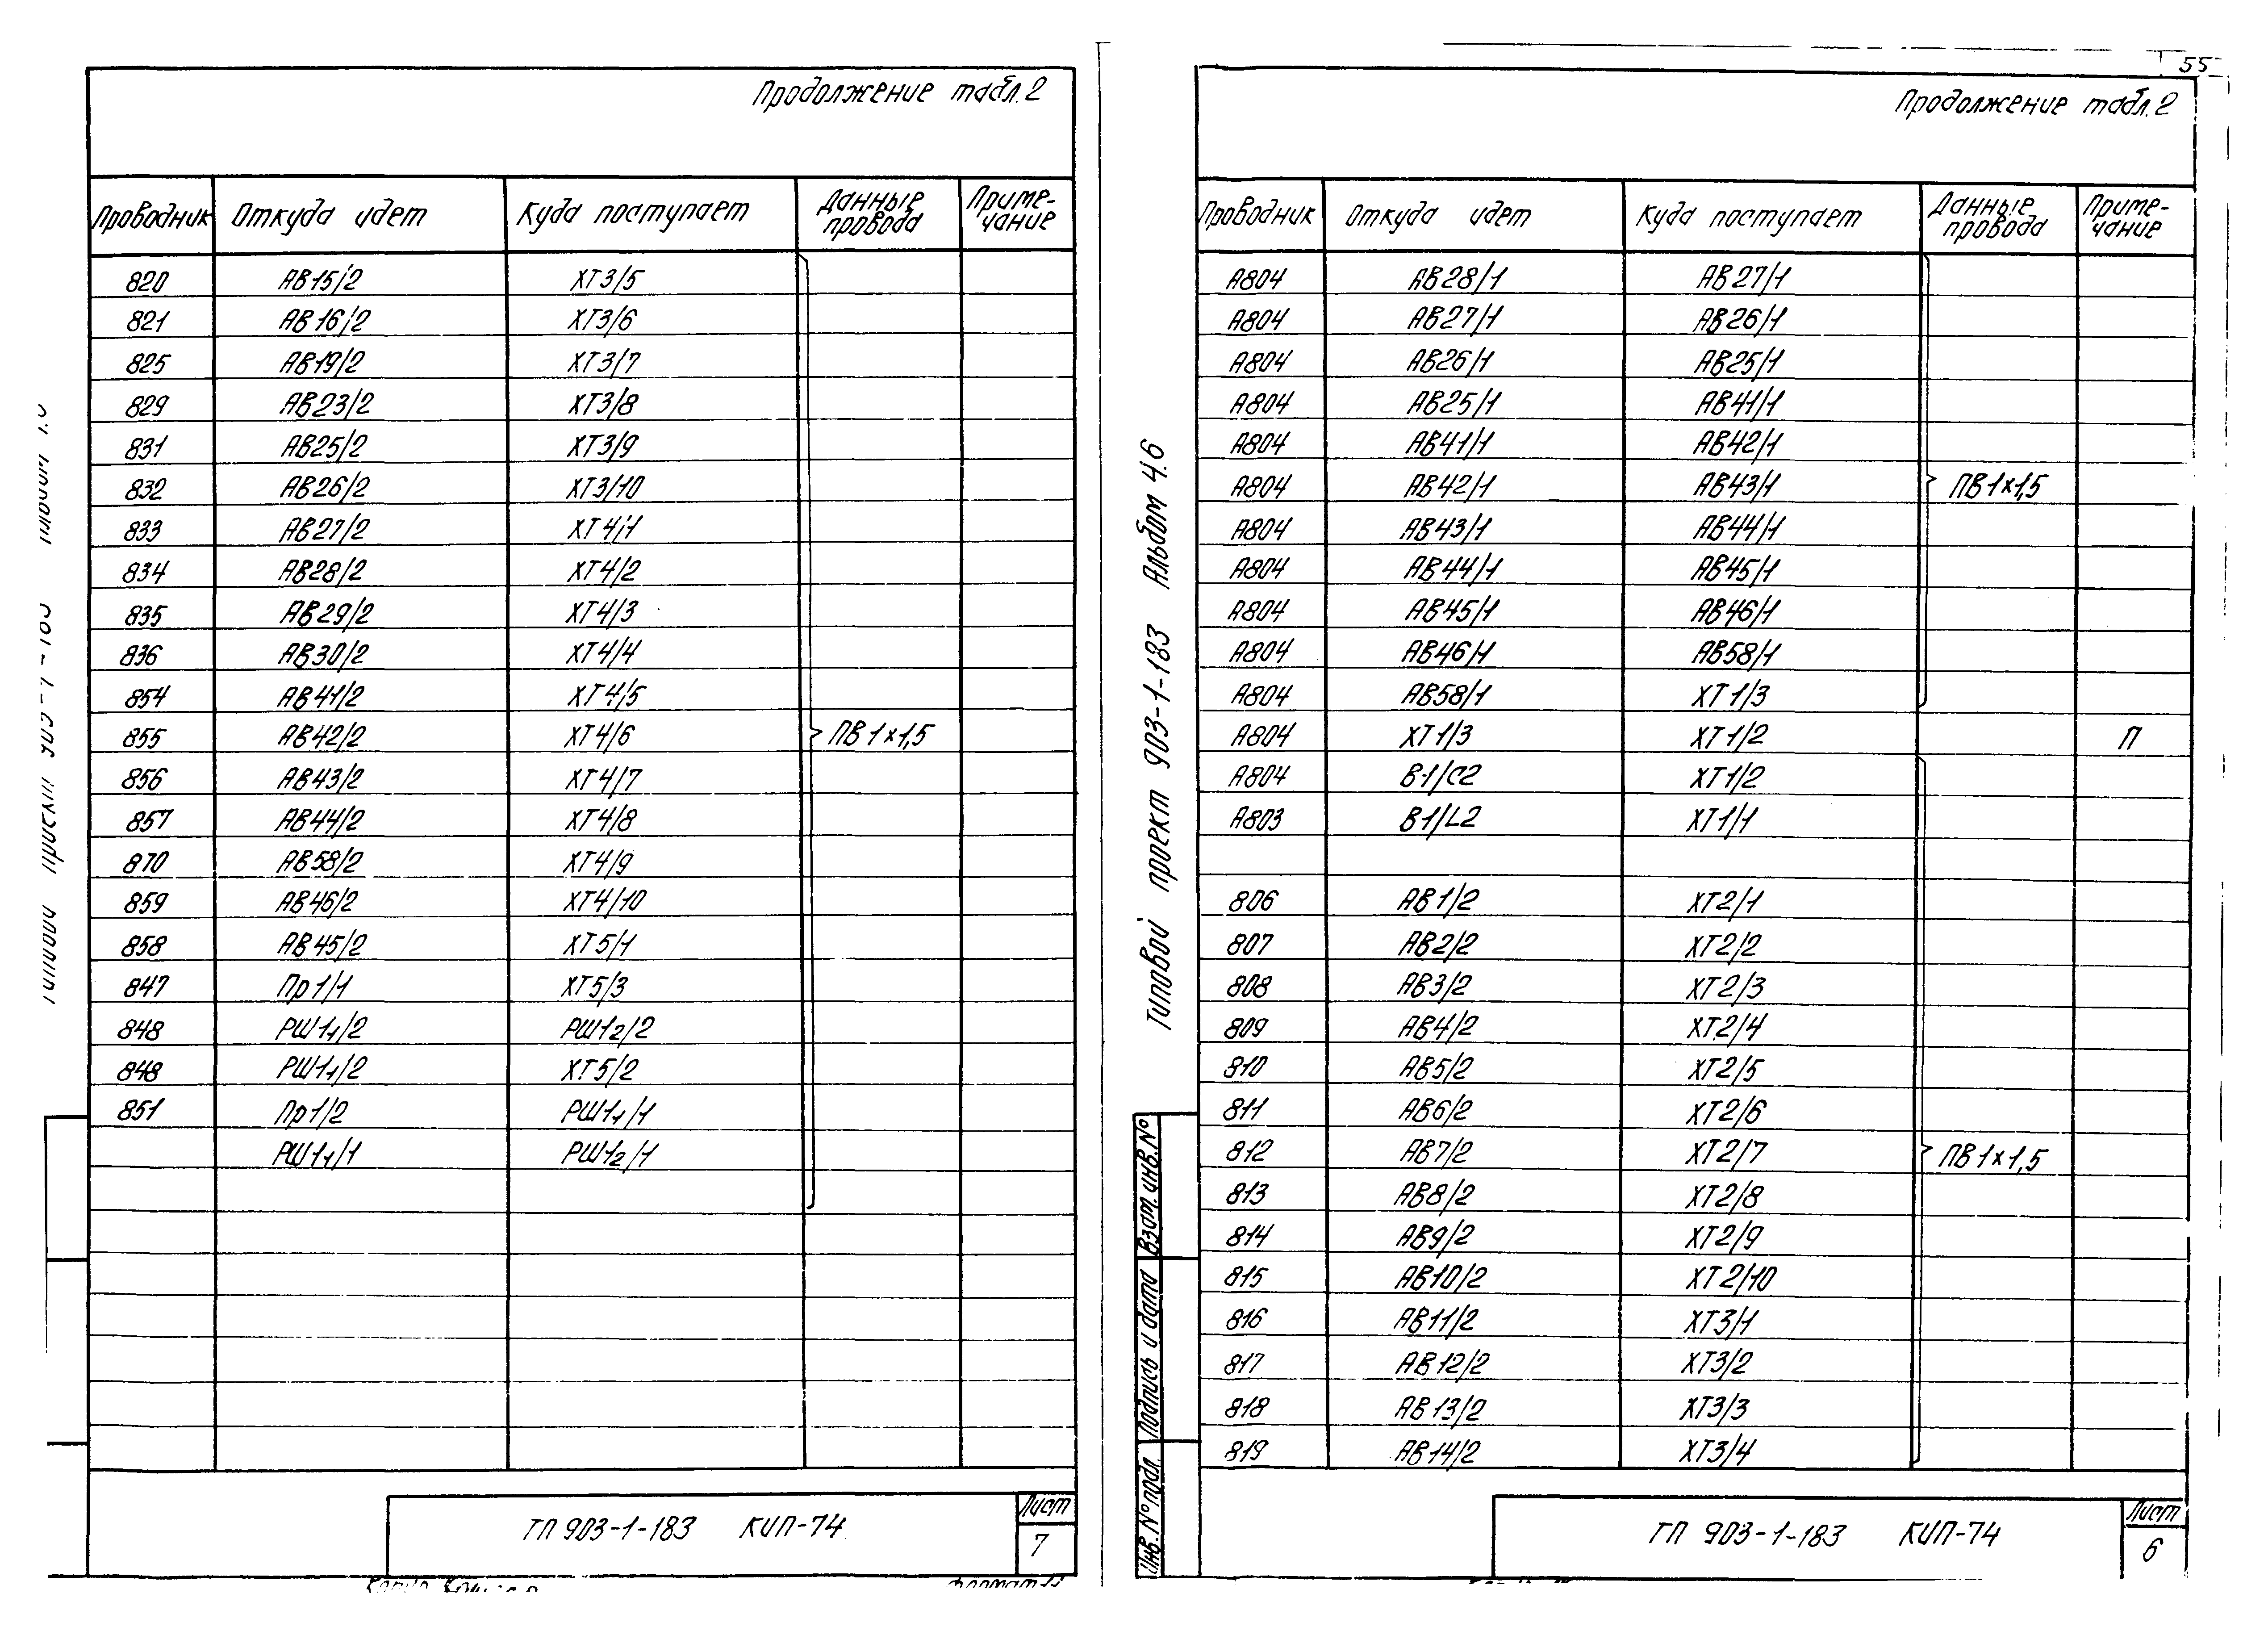 Продолжение табл.2
Проводник Откуда идет Куда поступает Данные провода Приме-чание
820 АВ15/2 ХТ3/5
821 АВ16/2 ХТ3/6
825 АВ19/2 ХТ3/7
829 АВ23/2 ХТ3/8
831 АВ25/2 ХТ3/9
832 АВ26/2 ХТ3/10
833 АВ27/2 ХТ4/1
834 АВ28/2 ХТ4/2
835 АВ29/2 ХТ4/3
836 АВ30/2 ХТ4/4
854 АВ41/2 ХТ4/5
855 АВ42/2 ХТ4/6 ПВ 1×1,5
856 АВ43/2 ХТ4/7
857 АВ44/2 ХТ4/8
870 АВ58/2 ХТ4/9
859 АВ46/2 ХТ4/10
858 АВ45/2 ХТ5/1
847 Пр1/1 ХТ5/3
848 РШ1₁/2 РШ1₂/2
848 РШ1₁/2 ХТ5/2
851 Пр1/2 РШ1₁/1
РШ1₁/1 РШ1₂/1
ТП 903-1-183 КИП-74
Лист
7
55
Продолжение табл.2
Проводник Откуда идет Куда поступает Данные провода Приме-чание
А804 АВ28/1 АВ27/1
А804 АВ27/1 АВ26/1
А804 АВ26/1 АВ25/1
А804 АВ25/1 АВ41/1
А804 АВ41/1 АВ42/1
А804 АВ42/1 АВ43/1 ПВ 1×1,5
А804 АВ43/1 АВ44/1
А804 АВ44/1 АВ45/1
А804 АВ45/1 АВ46/1
А804 АВ46/1 АВ58/1
А804 АВ58/1 ХТ1/3
А804 ХТ1/3 ХТ1/2 П
А804 В1/С2 ХТ1/2
А803 В1/L2 ХТ1/1
806 АВ1/2 ХТ2/1
807 АВ2/2 ХТ2/2
808 АВ3/2 ХТ2/3
809 АВ4/2 ХТ2/4
810 АВ5/2 ХТ2/5
811 АВ6/2 ХТ2/6
812 АВ7/2 ХТ2/7 ПВ 1×1,5
813 АВ8/2 ХТ2/8
814 АВ9/2 ХТ2/9
815 АВ10/2 ХТ2/10
816 АВ11/2 ХТ3/1
817 АВ12/2 ХТ3/2
818 АВ13/2 ХТ3/3
819 АВ14/2 ХТ3/4
Типовой проект 903-1-183 Альбом 4.6
Взам. инв. №
Подпись и дата
Инв. № подл.
ТП 903-1-183 КИП-74
Лист
6